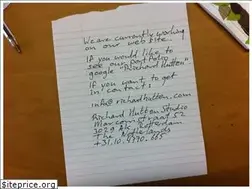 We are currently working
on our website.
If you would like to
see our portfolio
google "Richard Hutten"
If you want to get
in contact:
info@richardhutten.com
Richard Hutten Studio
Marconistraat 52
3029 AK Rotterdam
The Netherlands
siteprice.org